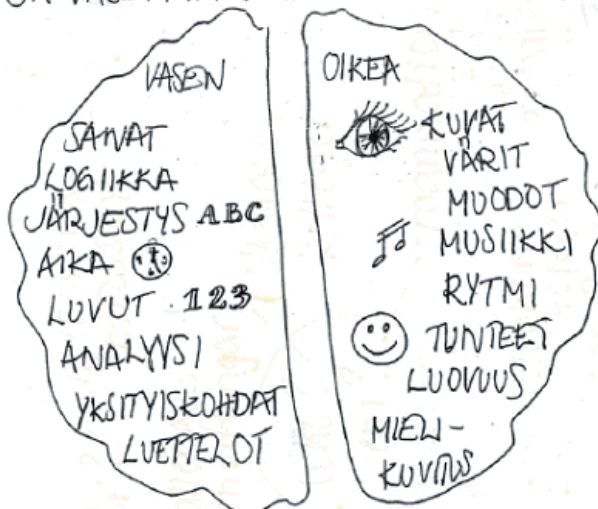 VASEN
SANAT
LOGIIKKA
JÄRJESTYS ABC
AIKA
LUVUT 123
ANALYYSI
YKSITYISKOHDAT
LUETTELOT
OIKEA
KUVAT
VÄRIT
MUODOT
MUSIIKKI
RYTMI
TUNTEET
LUOVUUS
MIELI-
KUVITUS